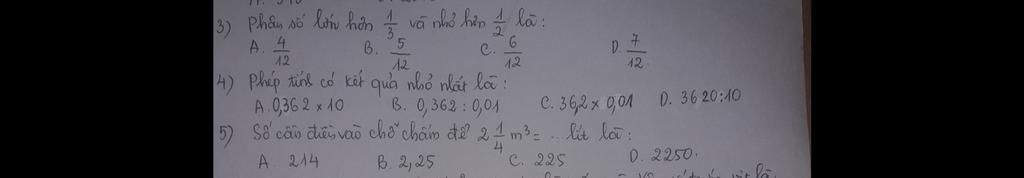 3) Phân số lớn hơn 1/3 và nhỏ hơn 1/2 là :
A. 4/12 B. 5/12 C. 6/12 D. 7/12.
4) Phép tính có kết quả nhỏ nhất là :
A. 0,362 x 10 B. 0,362 : 0,01 C. 36,2 x 0,01 D. 3620:10
5) Số cần điền vào chỗ chấm để 2 1/4 m³ = ... lít là :
A. 214 B. 2,25 C. 225 D. 2250.